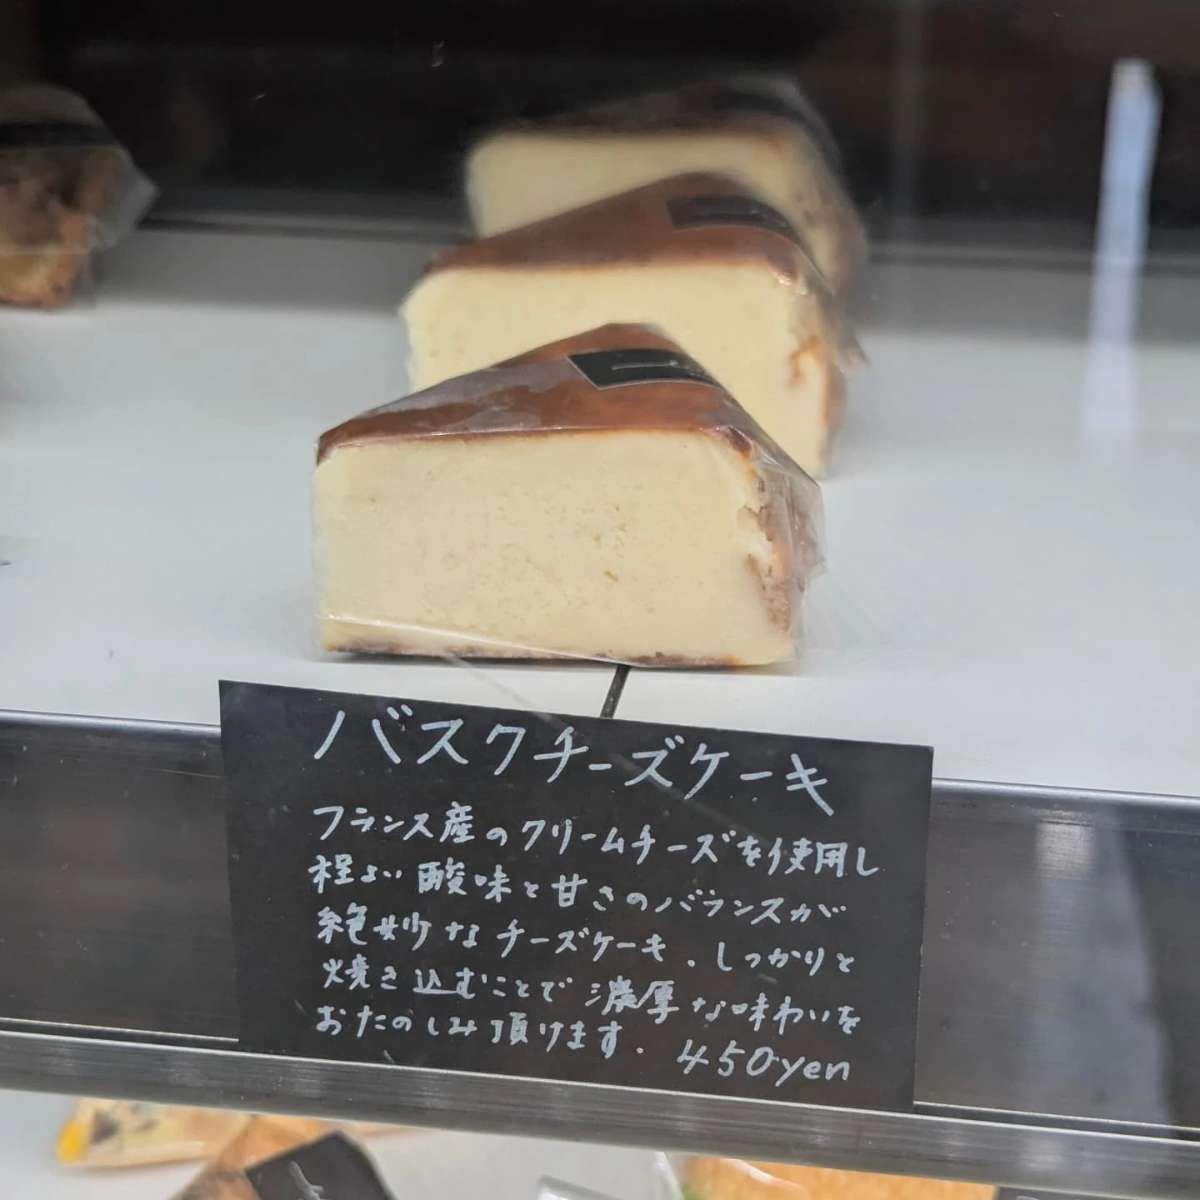 バスクチーズケーキ
フランス産のクリームチーズを使用し
程よい酸味と甘さのバランスが
絶妙なチーズケーキ。しっかりと
焼き込むことで濃厚な味わいを
おたのしみ頂けます。 450yen